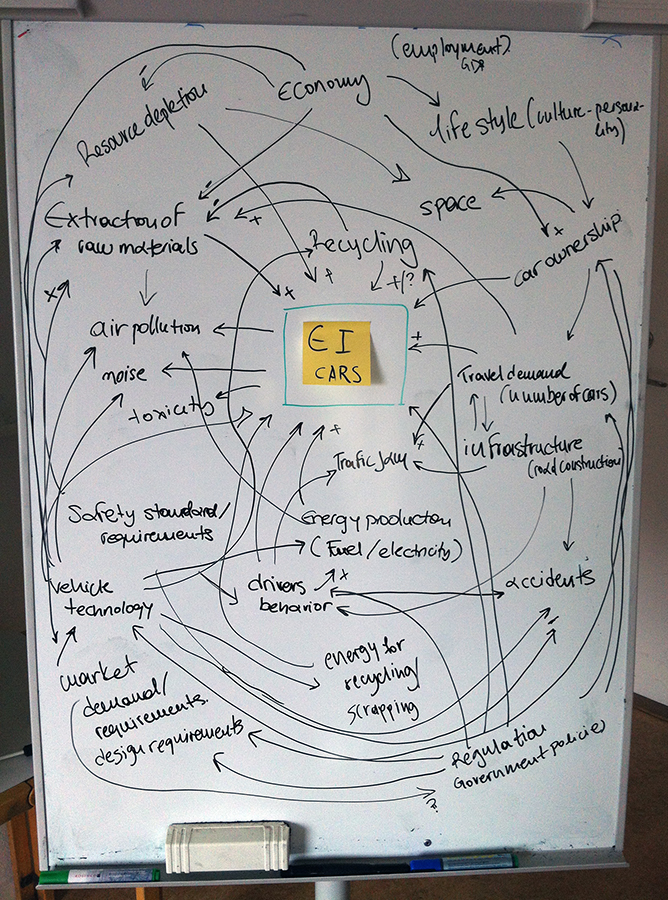 (employment)
GDP
Economy
Resource depletion
life style (culture-persona-
lity)
space
Extraction of
raw materials
Recycling
car ownership
+
+
+
+
+/?
air pollution
EI
CARS
+
Travel demand
(number of cars)
noise
toxicity
+
infrastructure
(road construction)
Trafic Jam
Safety standard/
requirements
Energy production
(Fuel/electricity)
vehicle
technology
drivers
behavior
accidents
energy for
recycling/
scrapping
market
demand/
requirements.
design requirements
Regulation
Government policies
?